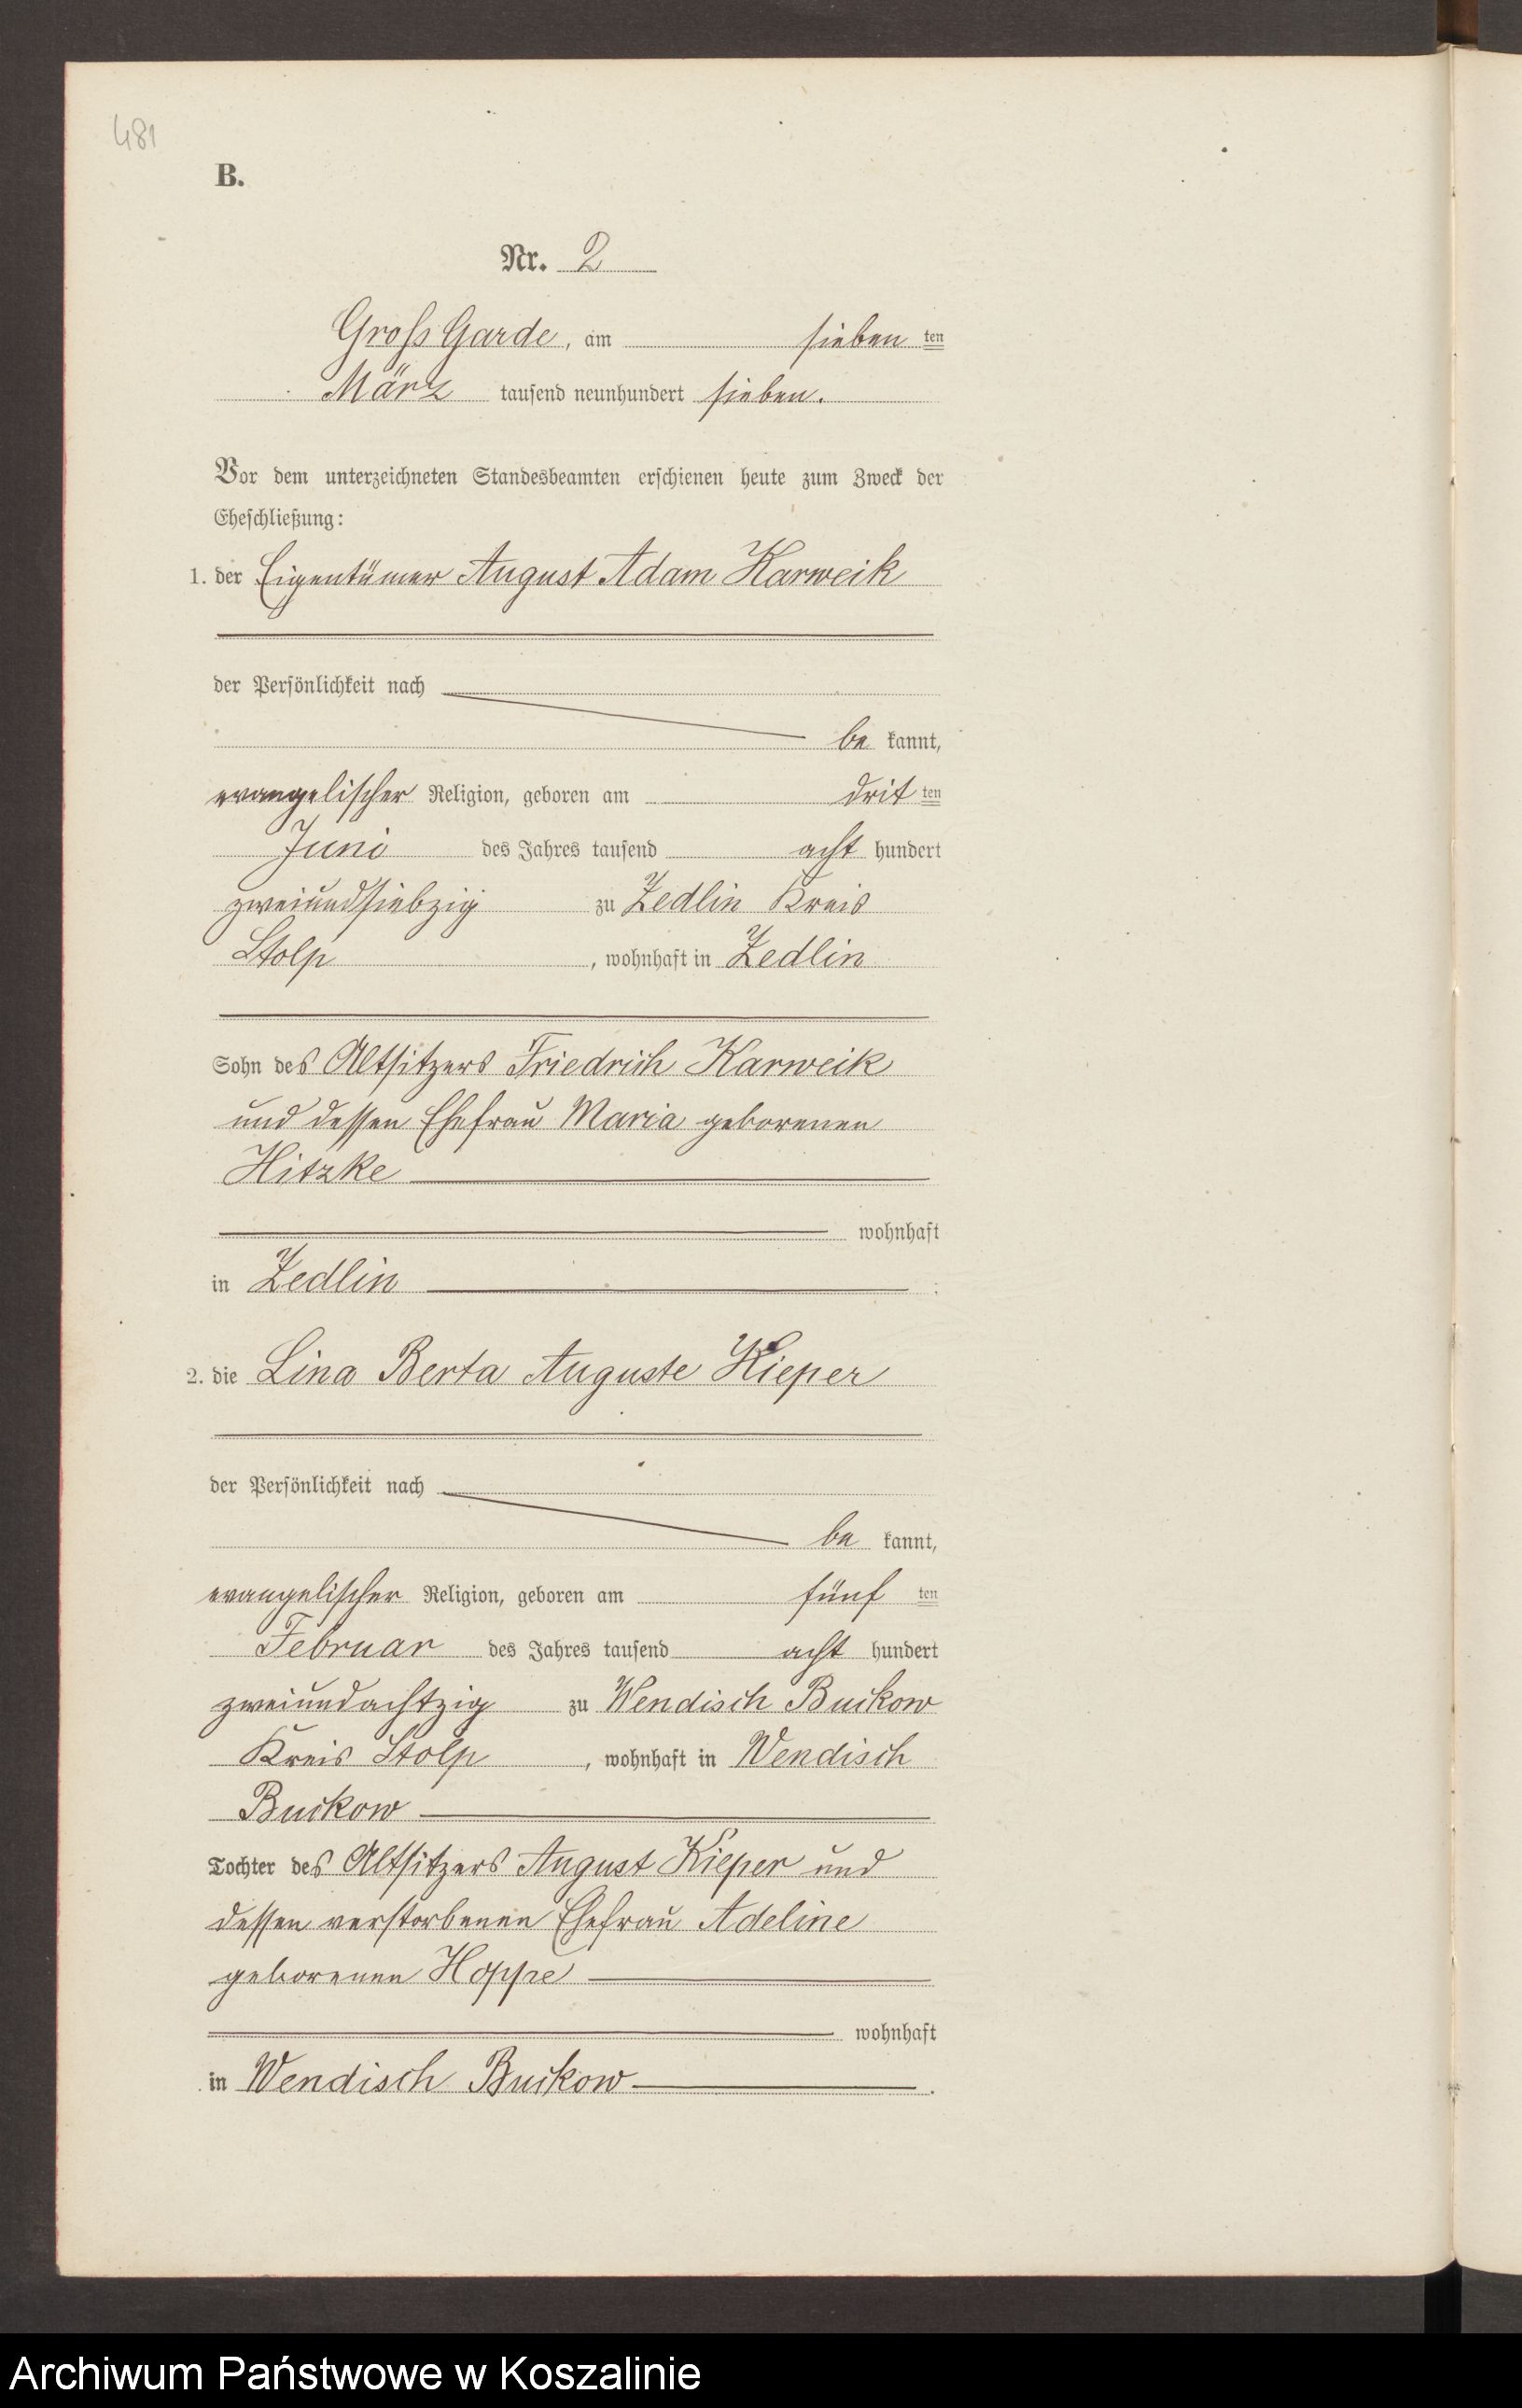 481
B.
Nr. 2
Groß Garde, am sieben ten
März tausend neunhundert sieben.
Vor dem unterzeichneten Standesbeamten erschienen heute zum Zweck der
Eheschließung:
1. der Eigentümer August Adam Karweik
der Persönlichkeit nach
be kannt,
evangelischer Religion, geboren am drit ten
Juni des Jahres tausend acht hundert
zweiundsiebzig zu Zedlin Kreis
Stolp, wohnhaft in Zedlin
Sohn des Altsitzers Friedrich Karweik
und dessen Ehefrau Maria geborenen
Hitzke
wohnhaft
in Zedlin ;
2. die Lina Berta Auguste Kieper
der Persönlichkeit nach
be kannt,
evangelischer Religion, geboren am fünf ten
Februar des Jahres tausend acht hundert
zweiundachtzig zu Wendisch Buckow
Kreis Stolp, wohnhaft in Wendisch
Buckow
Tochter des Altsitzers August Kieper und
dessen verstorbenen Ehefrau Adeline
geborenen Hoppe
wohnhaft
in Wendisch Buckow.
Archiwum Państwowe w Koszalinie